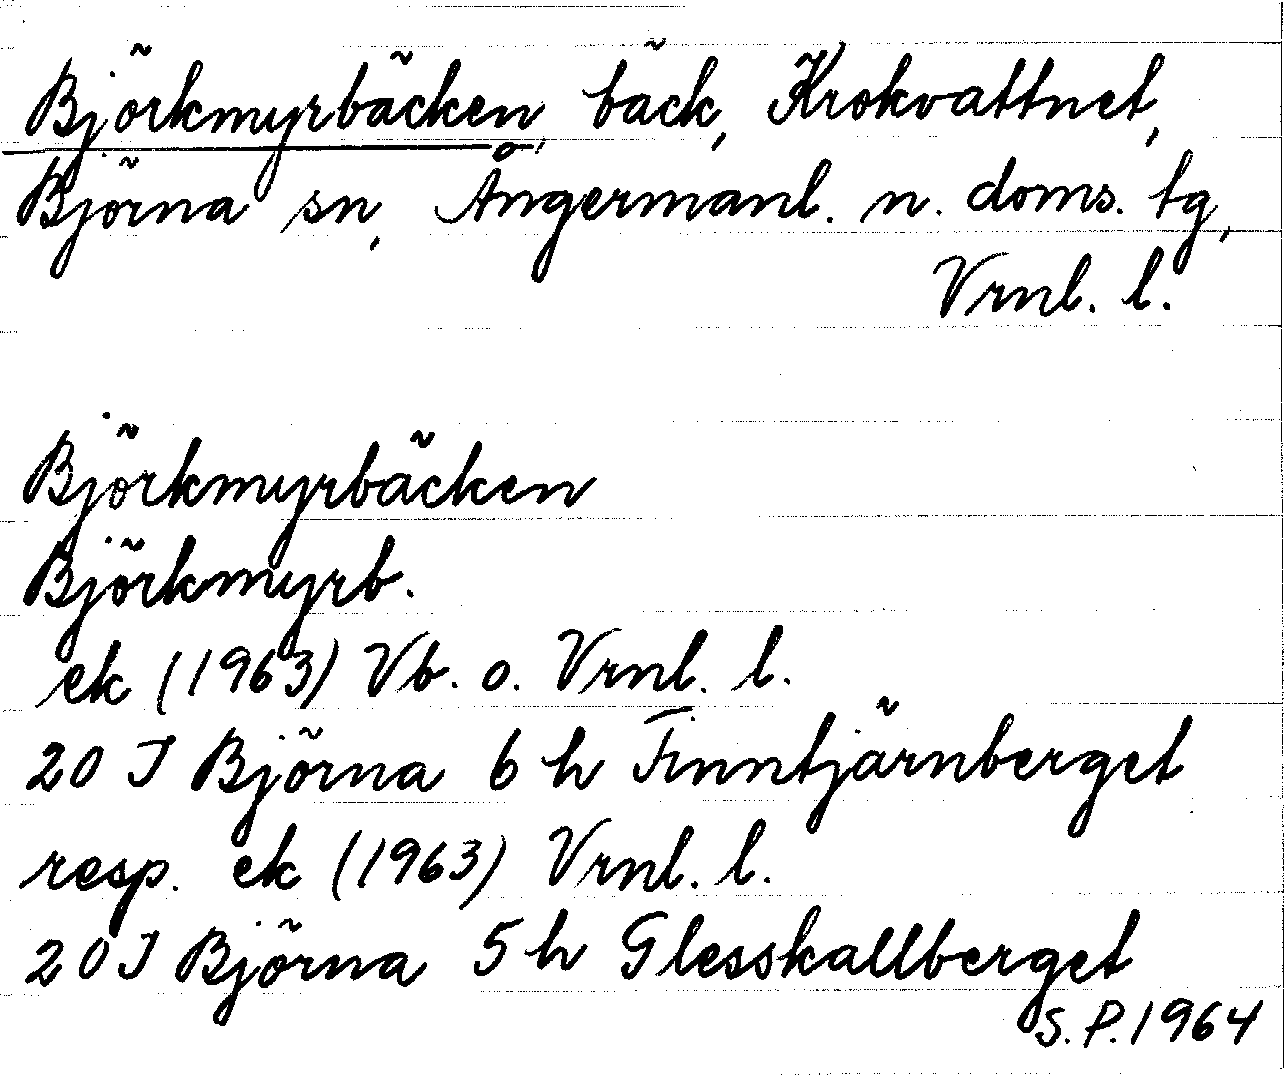 Björkmyrbäcken, bäck, Krokvattnet,
Björna sn, Ångermanl. n. doms. tg,
Vrnl. l.
Björkmyrbäcken
Björkmyrb.
ek (1963) Vb. o. Vrnl. l.
20 J Björna 6 h Finntjärnberget
resp. ek (1963) Vrnl. l.
20 J Björna 5 h Glesskallberget
S.P. 1964